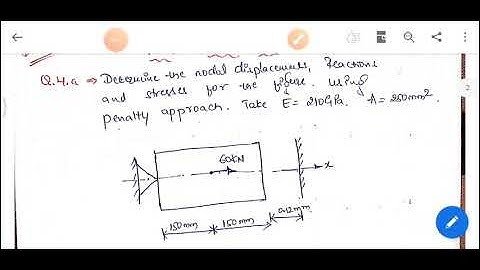 Q.4.a ⇒ Determine the nodal displacements, Reactions
and stresses for the figure. using
penalty approach. Take E = 210GPa. A = 250mm².
60kN
x
0.12mm.
150mm
150mm
2